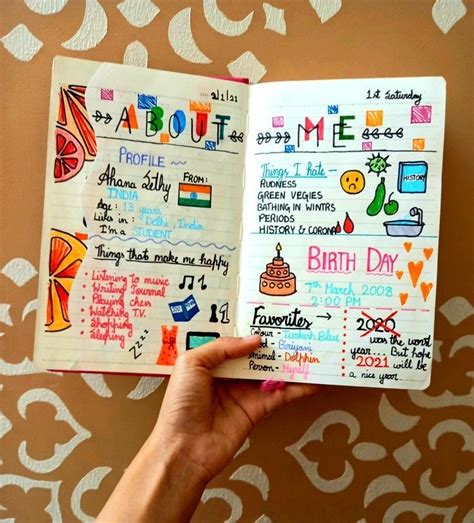 2/1/21
ABOUT
PROFILE
Ahana Sethy
INDIA
FROM:
Age: 13 years
Lives in: Delhi, India
I'm a STUDENT
Things that make me happy
Listening to music
Writing Journal
Playing chess
Watching T.V.
Shopping
Sleeping
ZZZ
1st Saturday
ME
Things I hate
RUDNESS
GREEN VEGIES
BATHING IN WINTRS
PERIODS
HISTORY & CORONA
HISTORY
BIRTH DAY
7th March 2008
2:00 PM
Favorites
Colour - Turkish Blue
Food - Biriyani
Animal - Dolphin
Person - Myself
2020
was the worst
year... But hope
2021 will be
a nice year.